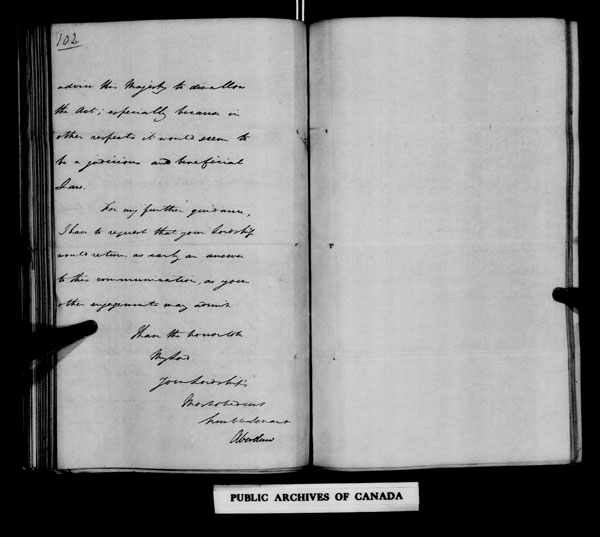 102
advise His Majesty to disallow
the Act; especially because in
other respects it would seem to
be a judicious and beneficial
Law.
For my further guidance,
I have to request that your Lordship
would return as early an answer
to this communication, as your
other engagements may admit.
I have the honor to be
My Lord
Your Lordship's
Most obedient
humble Servant
Aberdeen
PUBLIC ARCHIVES OF CANADA